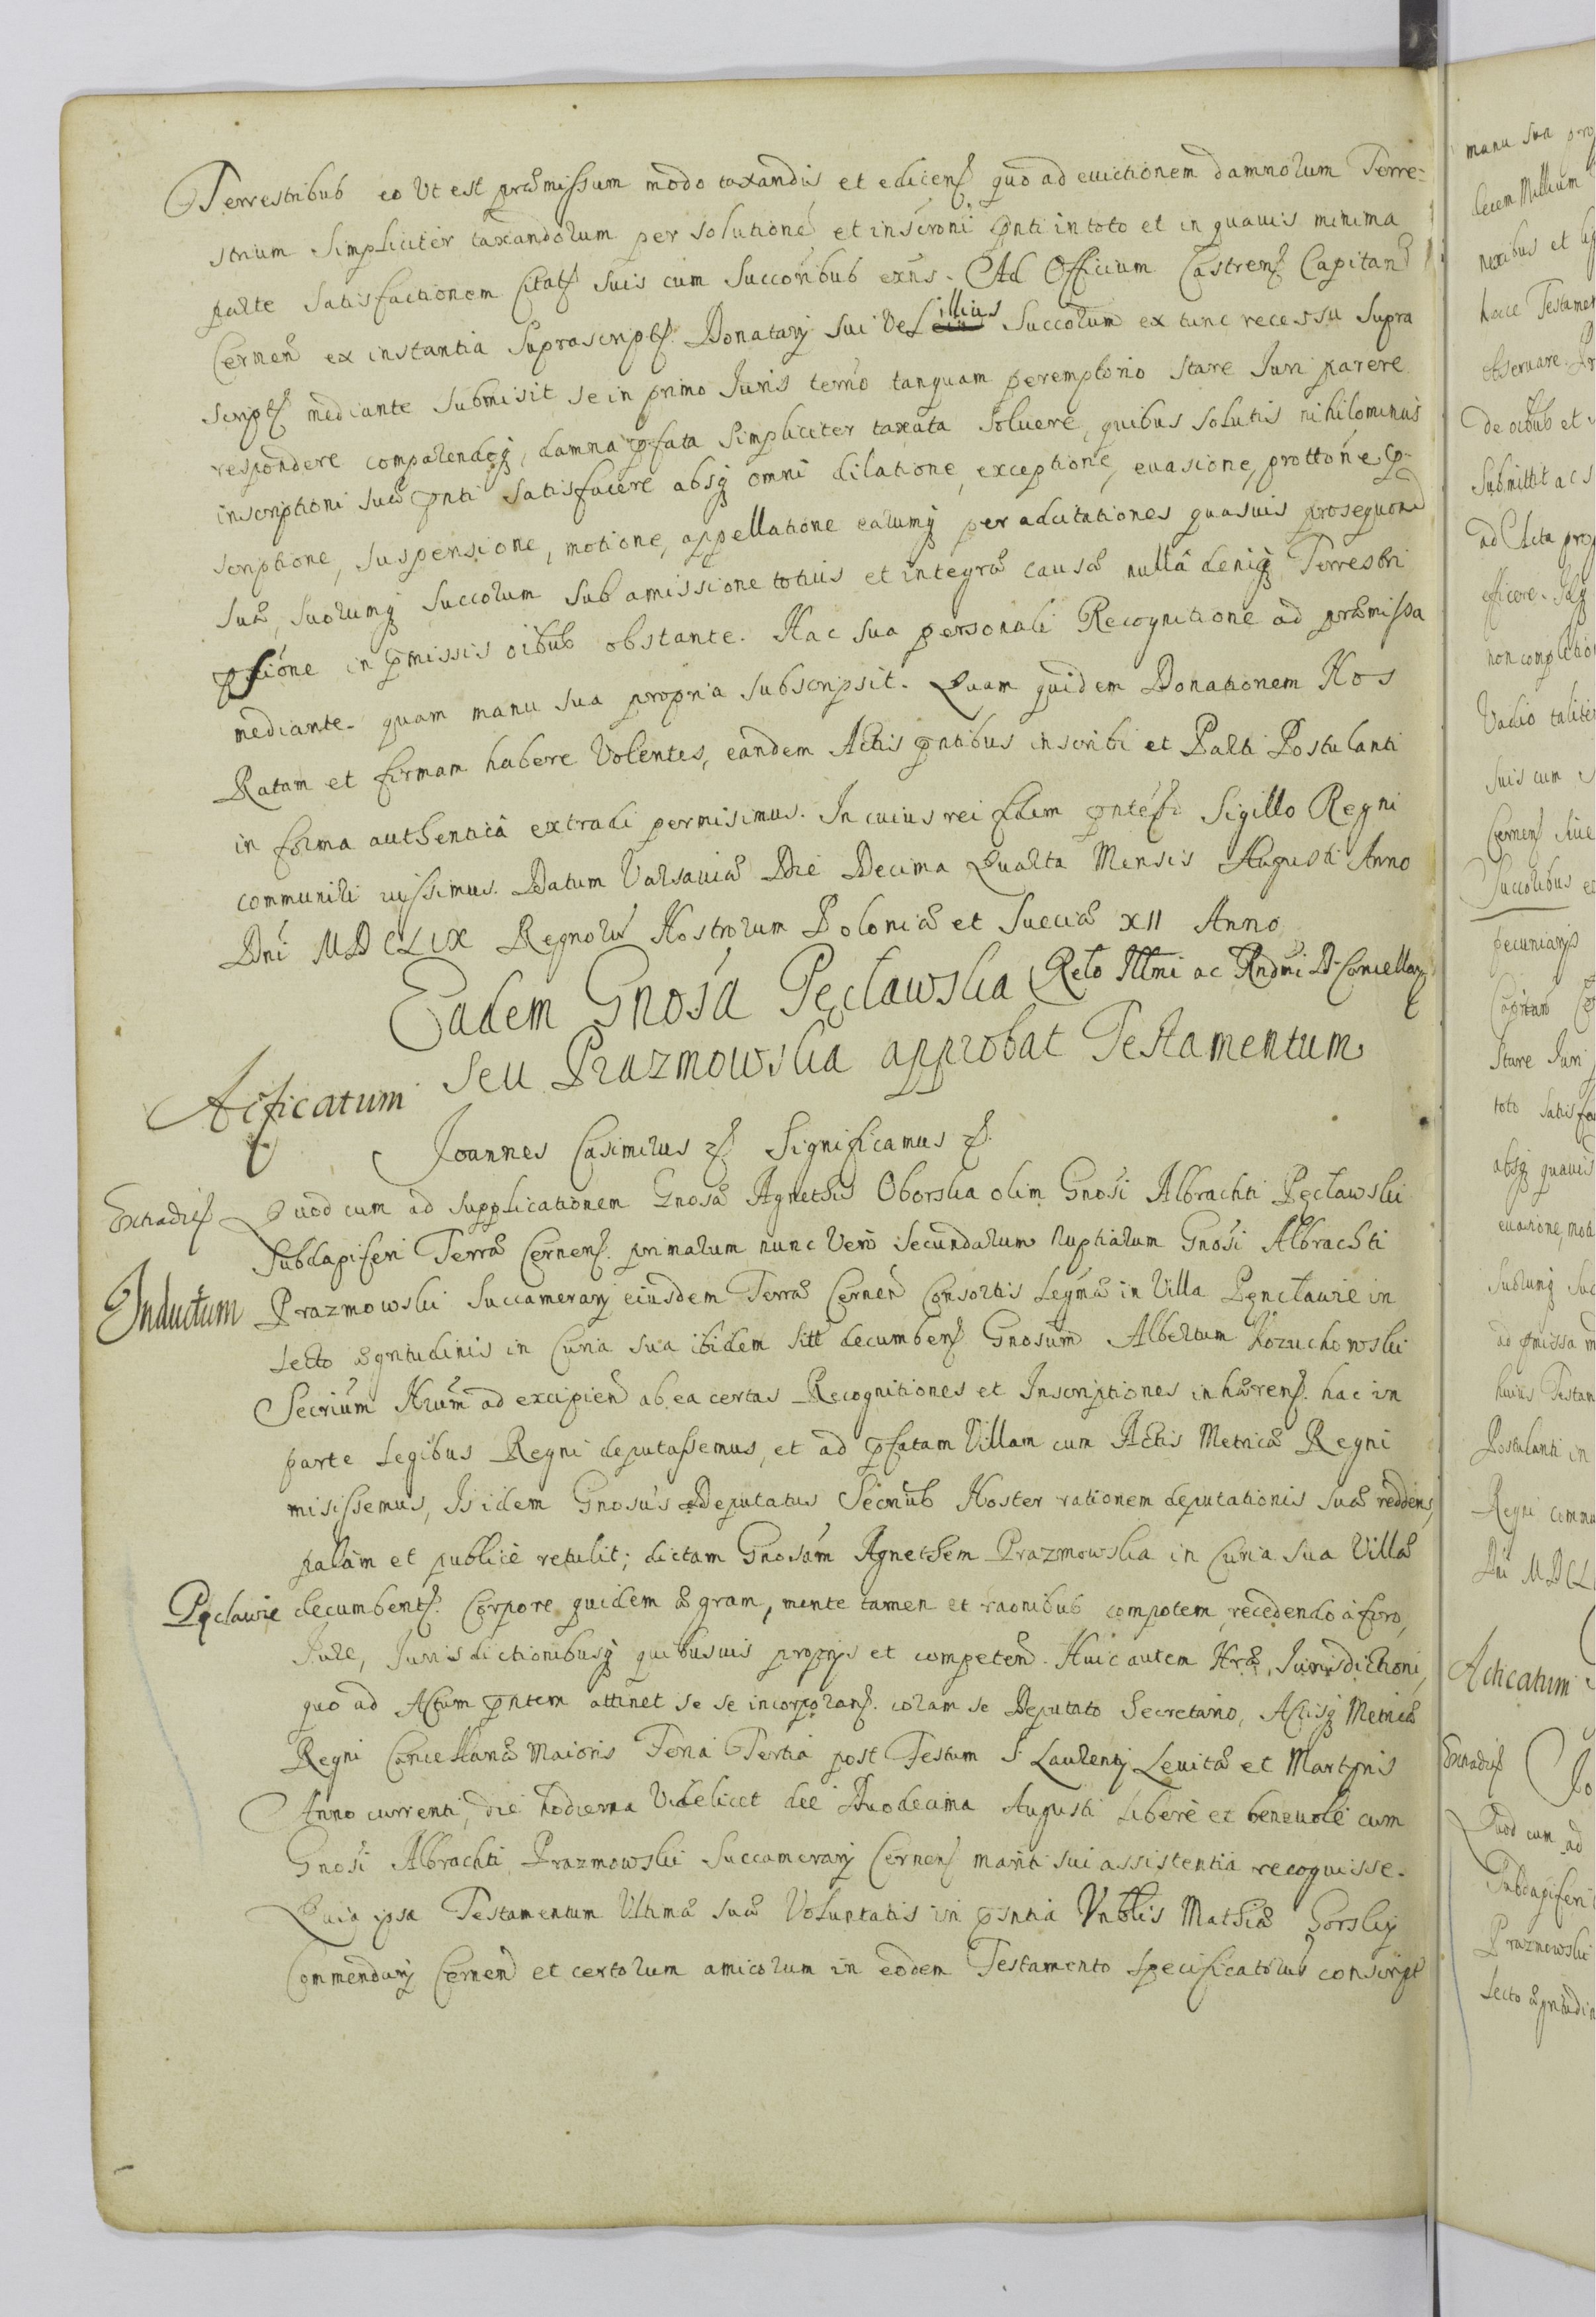 Terrestribus eo Ut est præmissum modo taxandis et edicens quo ad evictionem damnorum Terre-
strium Simpliciter taxandorum per solutione et inscrõni pnti in toto et in quauis minima
parte satisfactionem Citats suis cum Succoribus exns. Ad Officium Castrens Capitan
Cernen ex instantia Suprascripts Donatarij sui Vel illius Succorum ex tunc recessu supra
scripts mediante submisit se in primo Juris termo tanquam peremptorio stare Juri parere
respondere comparendoq, damna pfata Simpliciter taxata soluere, quibus solutis nihilominus
inscriptioni suæ pnti satisfacere absq omni dilatione, exceptione, euasione, prottone, p-
scriptione, suspensione, motione, appellatione earumq per adcitationes quasuis prosequon
suæ, suorumq Succorum sub amissione totius et integræ causæ nullâ deniq Terrestri
in pmissis oibus obstante. Hac sua personali Recognitione ad præmissa
mediante. quam manu sua propria subscripsit. Quam quidem Donationem Nos
Ratam et firmam habere Volentes, eandem Actis pntibus inscribi et Parti Postulanti
in forma authentica extradi permisimus. In cuius rei fidem Sigillo Regni
communiri iussimus. Datum Varsauiæ Die Decima Quarta Mensis Augusti Anno
Dni MDCLIX Regnorũ Nostrorum Poloniæ et Sueciæ XII Anno
Relo Illmi ac Rndmi D. Cancellarij
Eadem Gnosa Pęcławska
seu Prazmowska approbat Testamentum
Acticatum
Joannes Casimirus Significamus
Extradits
Quod cum ad supplicationem Gnosæ Agnethis Oborska olim Gnosi Albrachti Pęcławski
Subdapiferi Terræ Cernens. primarum nunc Vero Secundarum Nuptiarum Gnosi Albrachti
Inductum
Prazmowski Succamerarij eiusdem Terræ Cernen Consortis Legmæ in Villa Pęncławie in
Lecto ægritudinis in Curia sua ibidem sitt decumbens Gnosum Albertum Kozuchowski
Secrium Nrum ad excipien ab ea certas Recognitiones et Inscriptiones inhærens. hac in
parte Legibus Regni deputassemus, et ad pfatam Villam cum Actis Metricæ Regni
misissemus, Is idem Gnosus Deputatus Secrius Noster rationem deputationis suæ reddens,
palàm et publicè retulit; dictam Gnosam Agnethem Prazmowska in Curia sua Villæ
Pęcławie decumbents. Corpore quidem ægram, mente tamen et raonibus compotem, recedendo à foro,
Jure, Jurisdictionibusq quibusuis proprijs et competen. Huic autem Nræ, Jurisdictioni,
quo ad Actum pntem attinet se se incorporans. coram se Deputato Secretario, Actisq Metricæ
Regni Cancellariæ Maioris Feria Tertia post Festum S. Laurentij Leuitæ et Martyris
Anno currenti, die hodierna Videlicet die Duodecima Augusti Liberè et beneuolè cum
Gnosi Albrachti Prazmowski Succamerarij Cernens mariti sui assistentia recognisse.
Quia ipsa Testamentum Ultimæ suæ Voluntatis in pntia Vnblis Mathiæ Gorskij
Commendarij Cernen et certorum amicorum in eodem Testamento specificatorũ conscript
manu sua pro
decem Millium
nexibus et
hocce Testamen
obseruare.
De oibus et
Submittit ac s
ad Acta prop
efficere.
non completio
Vadio taliter
suis cum
Cernens siue
Succoribus e
pecuniarijs
Capitan
Stare Juri
toto satisfa
absq quauis
euasione, mot
Suorumq Suc
ad pmissa
huius Testam
Postulanti in
Regni commu
Dni MDCL
Acticatum
Extradits
Jo
Quod cum ad
Subdapiferi
Prazmowski
Lecto ægritudin